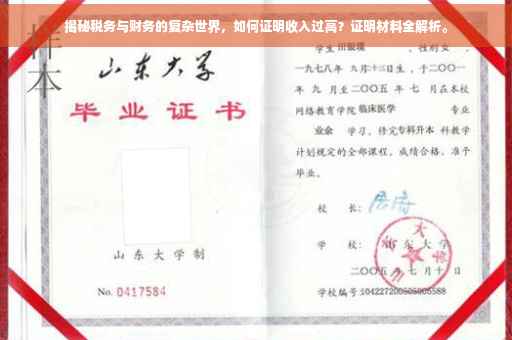 揭秘税务与财务的复杂世界，如何证明收入过高？证明材料全解析。
样本
山东大学
毕业证书
山东大学制
No. 0417584
学生
，性别女，
一九七八年 九月十二日生，于二〇〇一
年 九 月至二〇〇五 年 七 月在本校
网络教育学院 临床医学 专业
业余 学习，修完 专科升本 科教学
计划规定的全部课程，成绩合格，准予
毕业。
校 长：
学 校：山东大学
二〇〇五 年 七 月 十 日
学校编号: